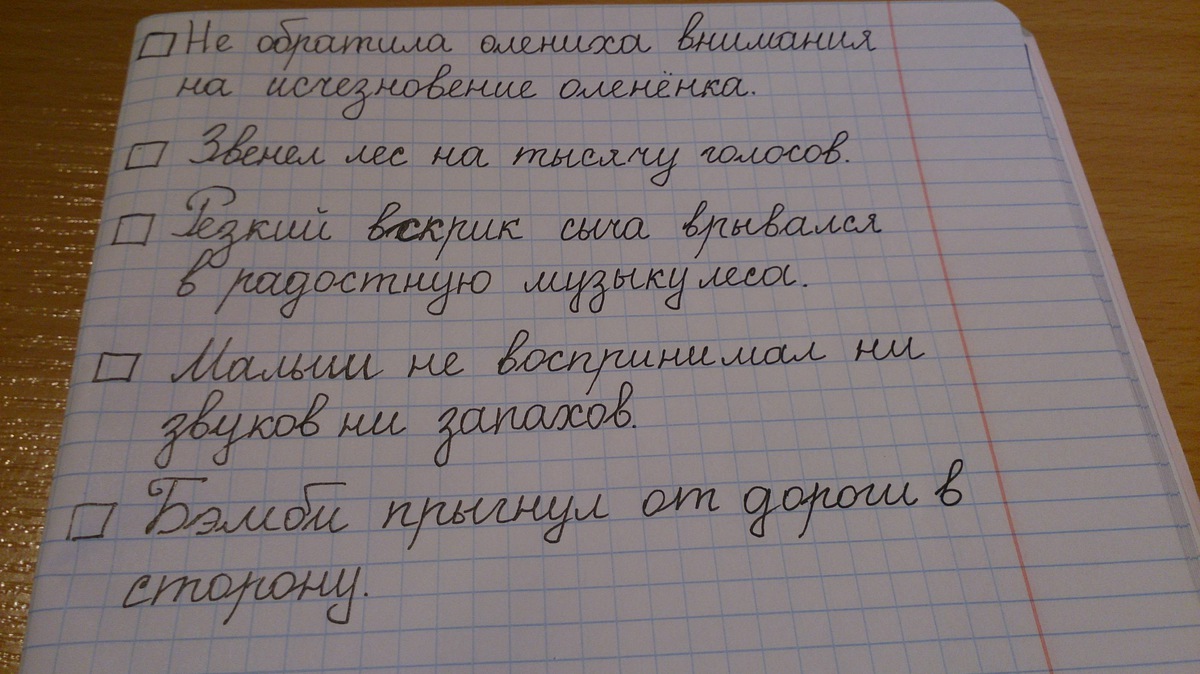 Не обратила олениха внимания
на исчезновение оленёнка.
Звенел лес на тысячу голосов.
Резкий вскрик сыча врывался
в радостную музыку леса.
Малыш не воспринимал ни
звуков ни запахов.
Бэмби прыгнул от дороги в
сторону.